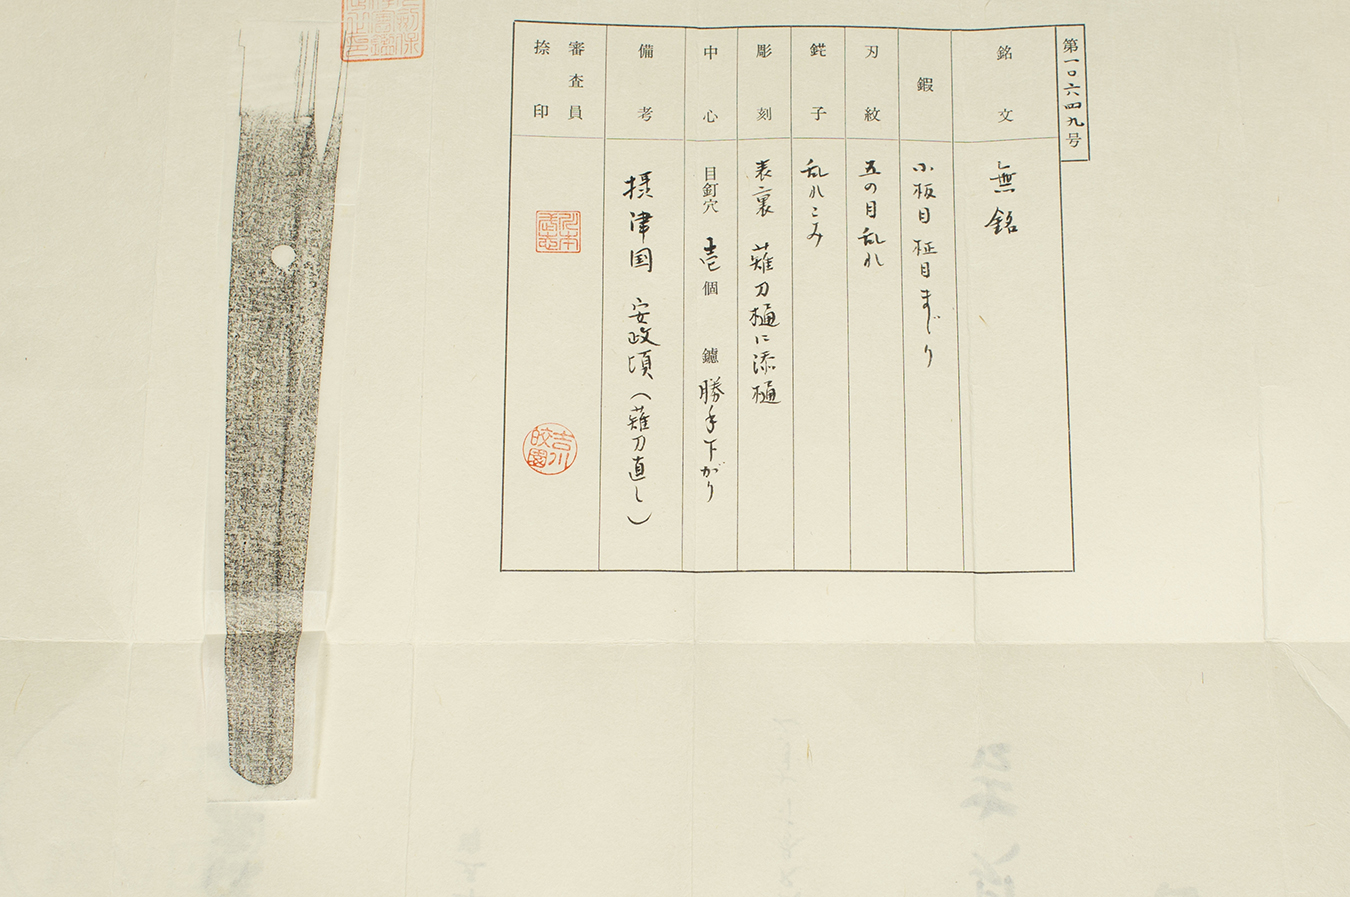 第一〇六四九号
銘文 無銘
鍜 小板目柾目まじり
刃紋 五の目乱れ
鋩子 乱れこみ
彫刻 表裏 薙刀樋に添樋
中心 目釘穴 壱個 鑢 勝手下がり
備考 摂津国 安政頃(薙刀直し)
審査員
捺印
吉川
皎園